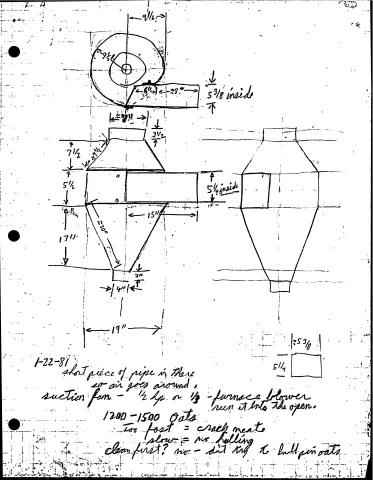 9 1/2
5 3/8 inside
3 1/2
7 1/2
5 1/2
5 1/4 inside
15"
17"
2"
4"
19"
5 3/8
5 1/4
1-22-81
short piece of pipe in there
so air goes around.
suction fan - 1/2 hp or 1/3 - furnace blower
run it into the open.
1200-1500 Oats
Too fast = crack meats
slow = no hulling
clean first? no - did try to hull pin oats